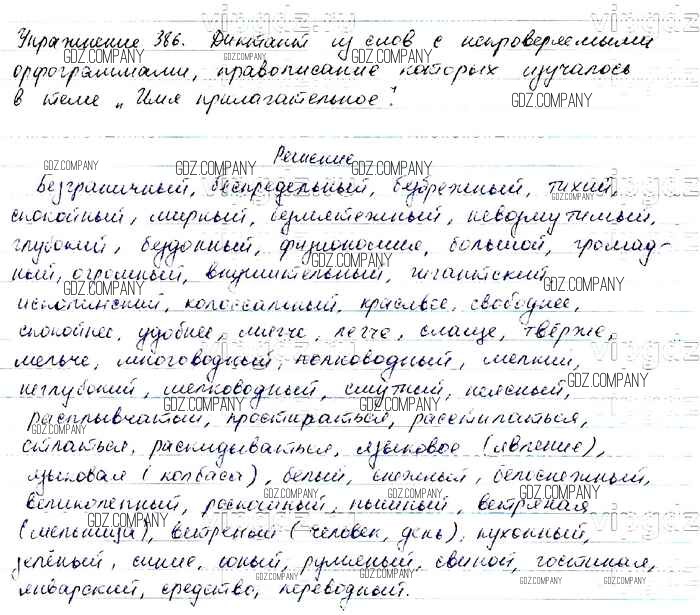 Упражнение 386. Диктант из слов с непроверяемыми
орфограммами, правописание которых изучалось
в теме „Имя прилагательное".
Решение
Безграничный, беспредельный, безбрежный, тихий,
спокойный, мирный, безмятежный, невозмутимый,
глубокий, бездонный, физиономия, большой, громад-
ный, огромный, внушительный, гигантский,
исполинский, колоссальный, красивее, свободнее,
спокойнее, удобнее, мягче, легче, слаще, твёрже,
мельче, многоводный, полноводный, мелкий,
неглубокий, мелководный, смутный, неясный,
расплывчатый, простираться, расстилаться,
стлаться, раскидываться, языковое (явление),
языковая (колбаса), белый, снежный, белоснежный,
великолепный, роскошный, пышный, ветряная
(мельница), ветреный (человек, день), кухонный,
зелёный, синие, юный, румяный, свиной, гостиная,
январский, средство, переводный.
GDZ.COMPANY
vipgdz.ru